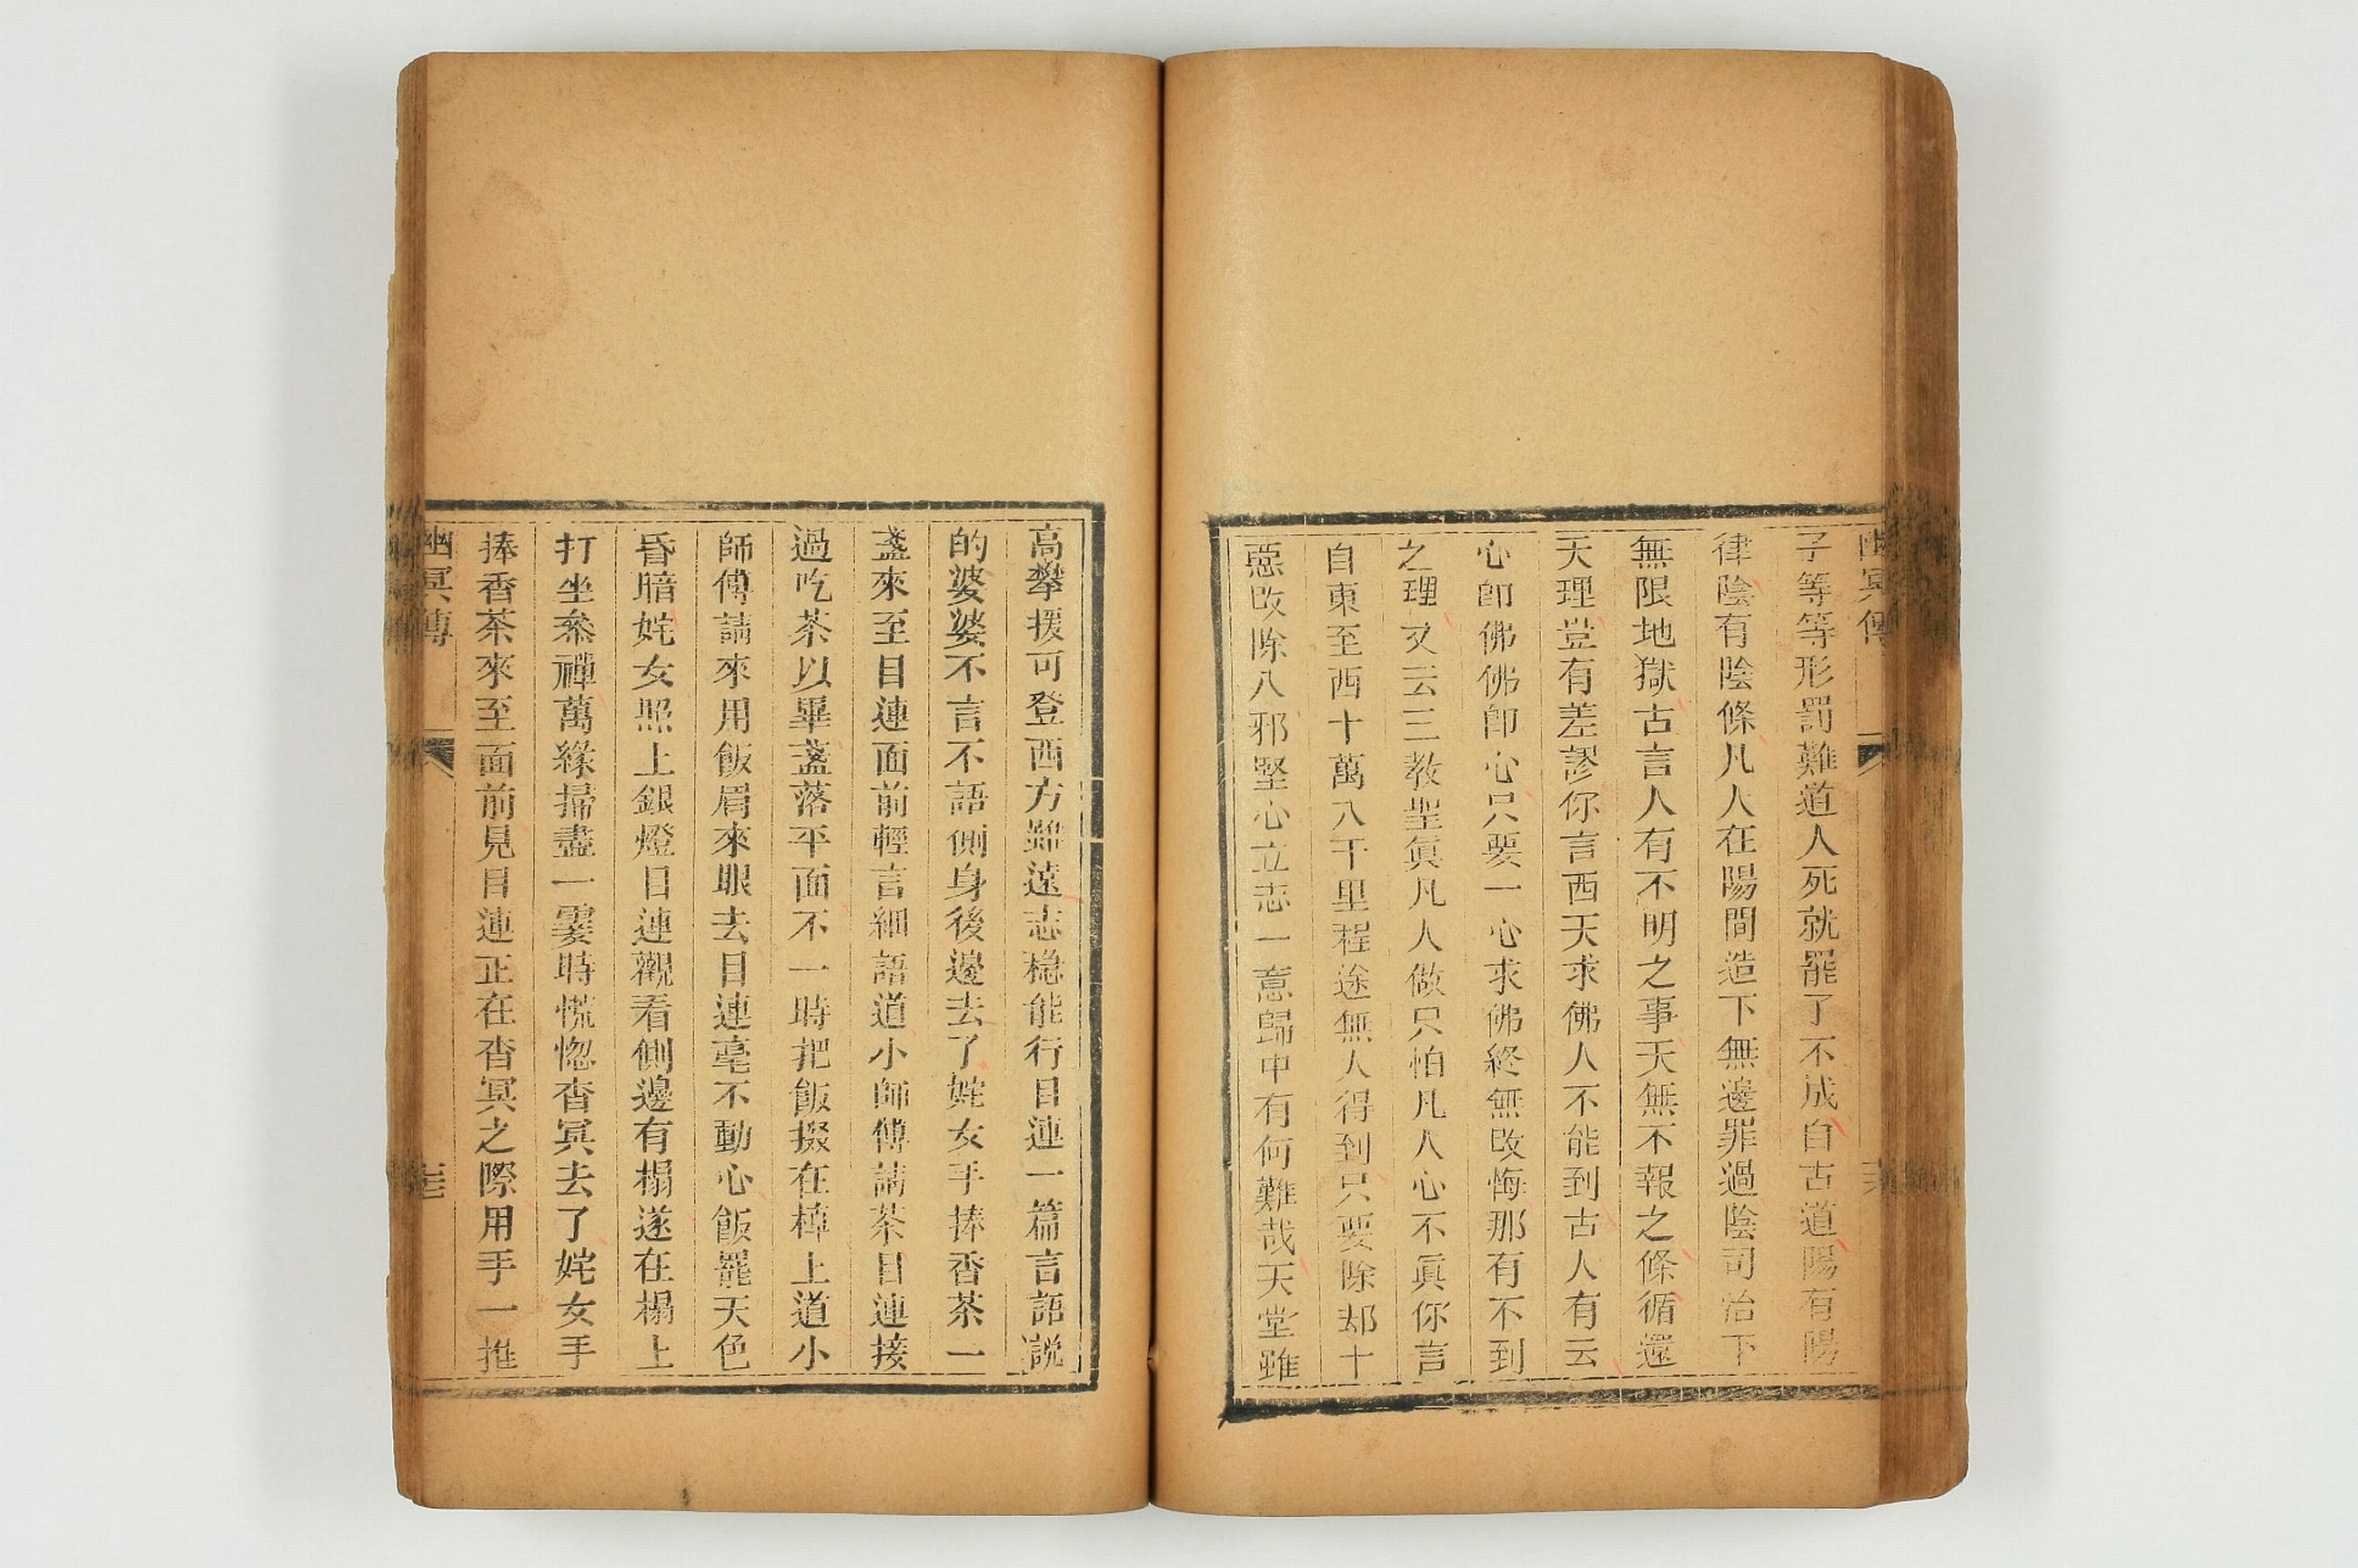 幽冥傳
子等等形罰難道人死就罷了不成自古道陽有陽
律陰有陰條凡人在陽間造下無邊罪過陰司治下
無限地獄古言人有不明之事天無不報之條循還
天理豈有差謬你言西天求佛人不能到古人有云
心卽佛佛卽心只要一心求佛終無改悔那有不到
之理又云三教聖眞凡人做只怕凡人心不眞你言
自東至西十萬八千里程途無人得到只要除却十
惡改除八邪堅心立志一意歸中有何難哉天堂雖
高攀援可登西方雖遠志穩能行目連一篇言語說
的婆婆不言不語側身後邊去了姹女手捧香茶一
盞來至目連面前輕言細語道小師傅請茶目連接
過吃茶以畢盞落平面不一時把飯掇在棹上道小
師傅請來用飯眉來眼去目連毫不動心飯罷天色
昏暗姹女照上銀燈目連觀看側邊有榻遂在榻上
打坐叅禪萬緣掃盡一霎時慌惚杳冥去了姹女手
捧香茶來至面前見目連正在杳冥之際用手一推
幽冥傳